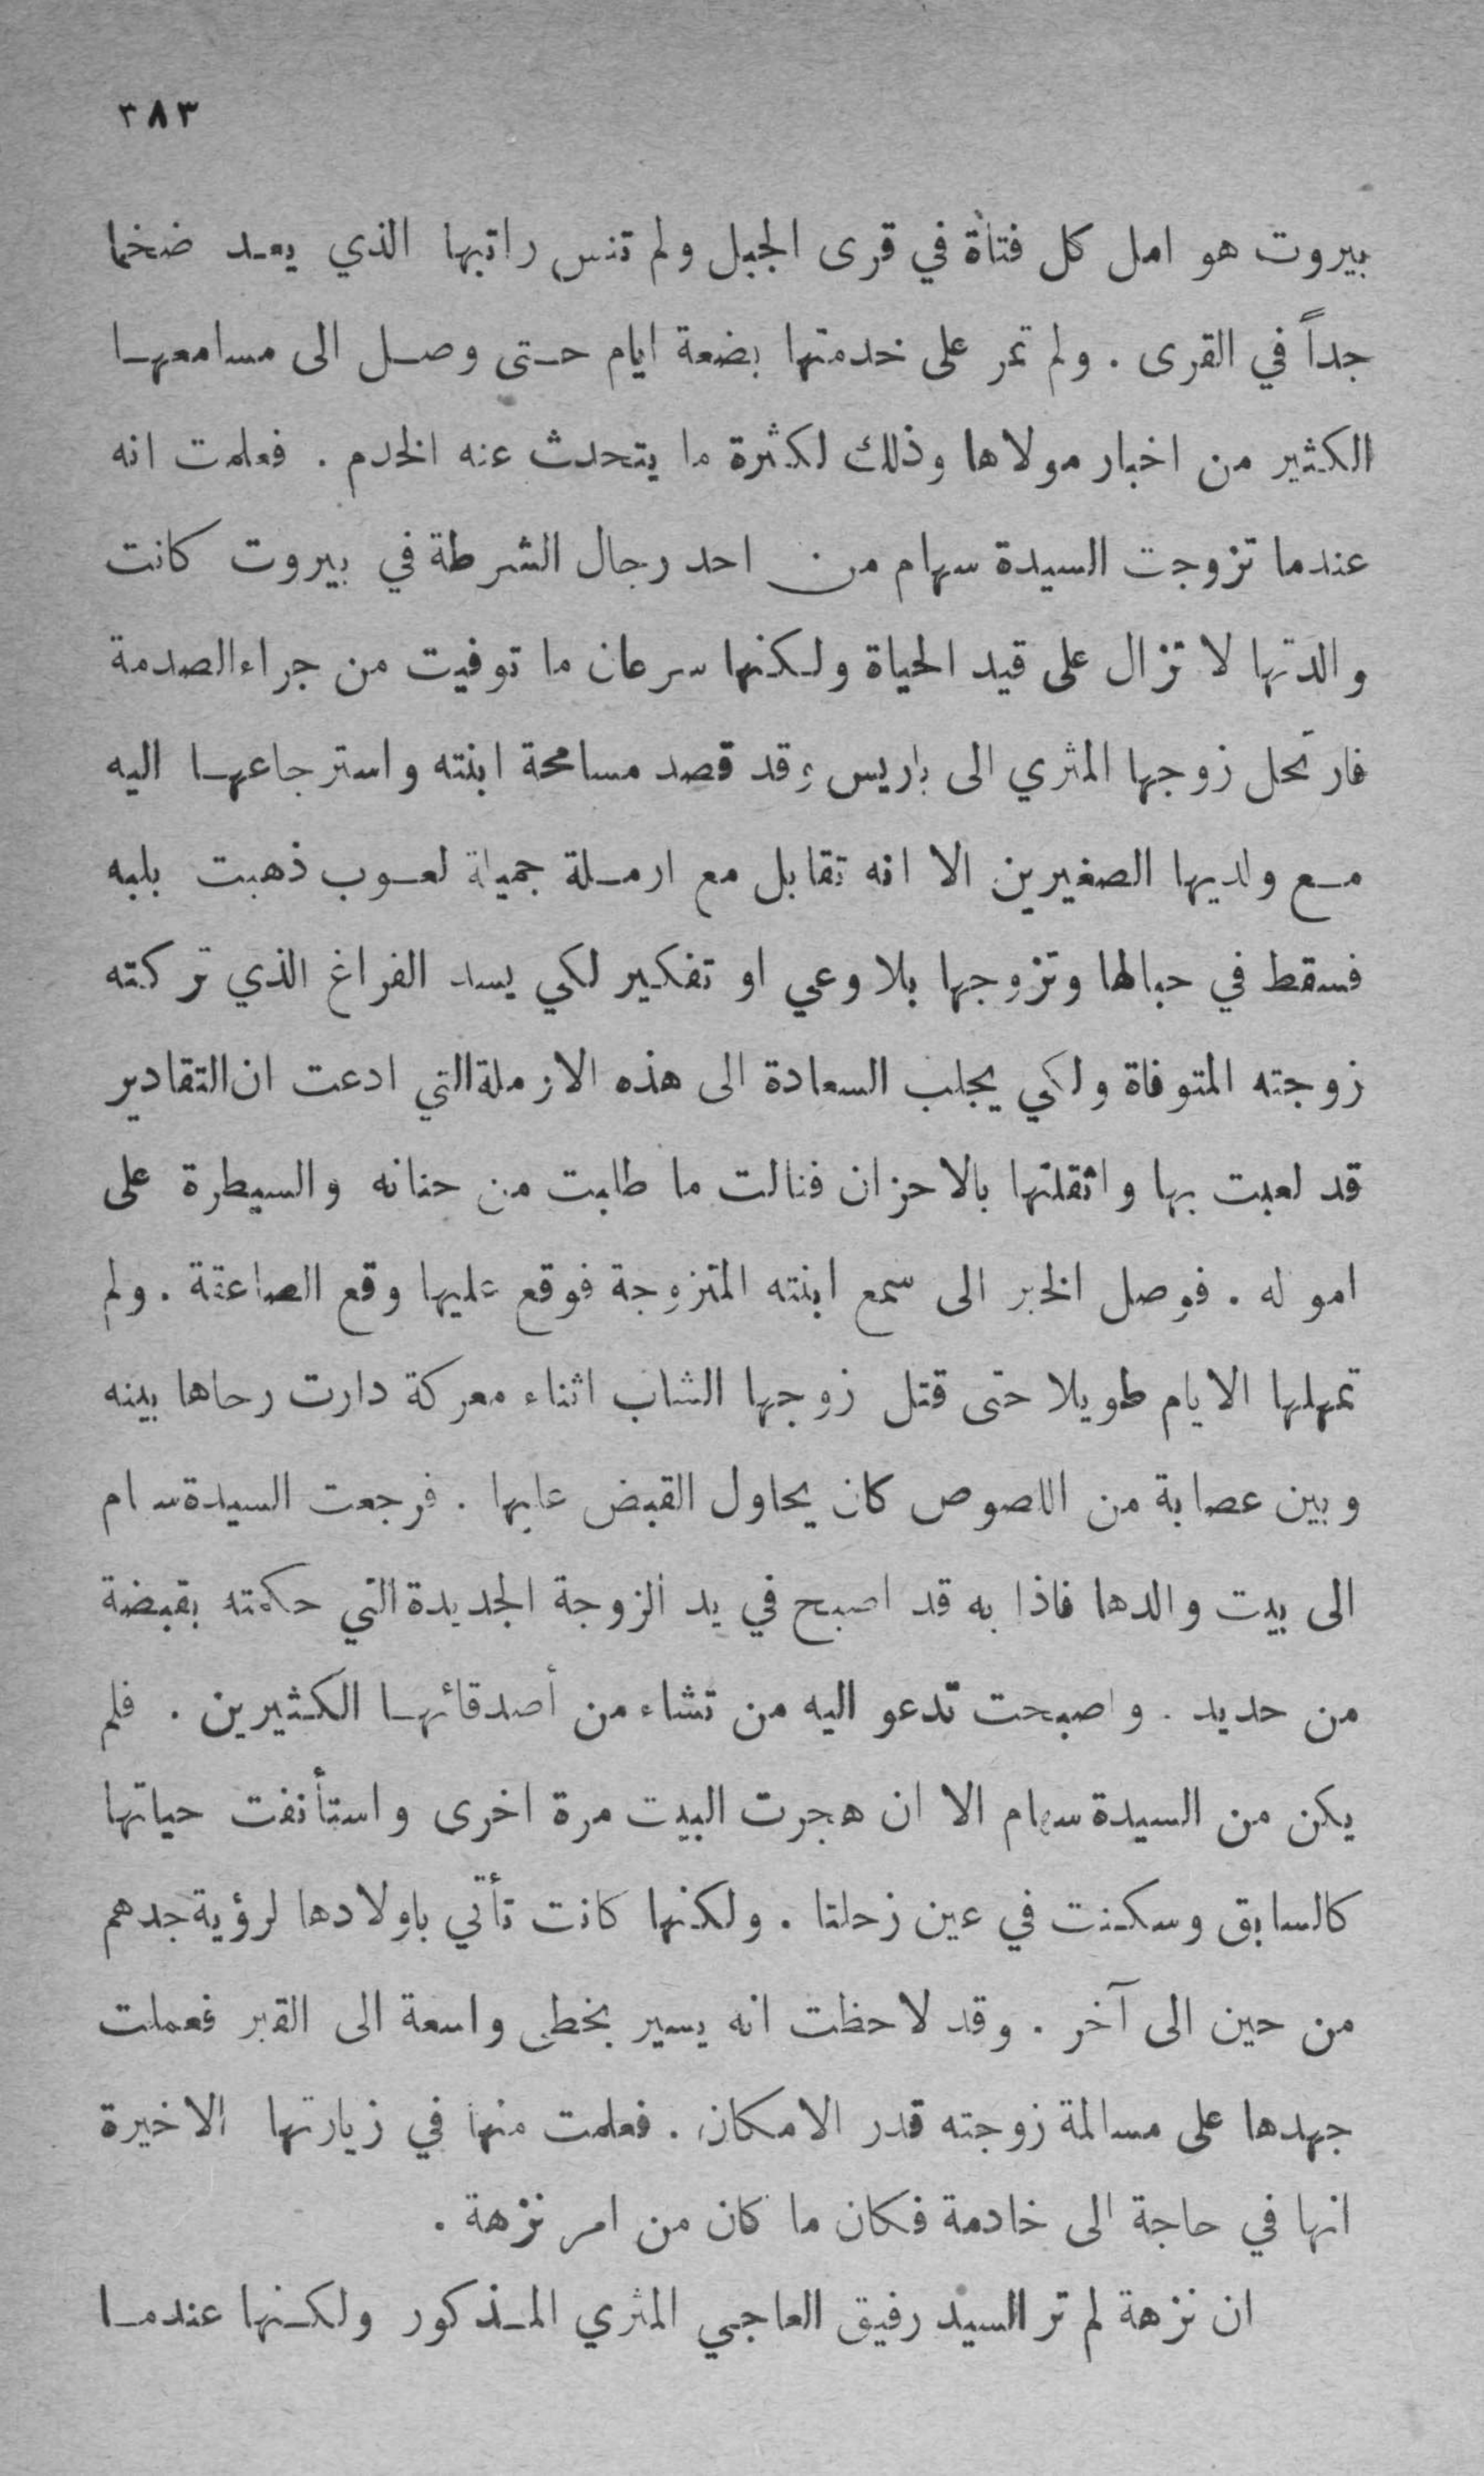 ٣٨٣
بيروت هو امل كل فتاة في قرى الجبل ولم تنس راتبها الذي يعد ضخما
جداً في القرى . ولم تمر على خدمتها بضعة ايام حتى وصل الى مسامعها
الكثير من اخبار مولاها وذلك لكثرة ما يتحدث عنه الخدم . فعلمت انه
عندما تزوجت السيدة سهام من احد رجال الشرطة في بيروت كانت
والدتها لا تزال على قيد الحياة ولكنها سرعان ما توفيت من جراء الصدمة
فارتحل زوجها المثري الى باريس وقد قصد مسامحة ابنته واسترجاعها اليه
مع ولديها الصغيرين الا انه تقابل مع ارملة جميلة لعوب ذهبت بلبه
فسقط في حبالها وتزوجها بلا وعي او تفكير لكي يسد الفراغ الذي تركته
زوجته المتوفاة ولكي يجلب السعادة الى هذه الارملة التي ادعت ان التقادير
قد لعبت بها واثقلتها بالاحزان فنالت ما طلبت من حنانه والسيطرة على
امواله . فوصل الخبر الى سمع ابنته المتزوجة فوقع عليها وقع الصاعقة . ولم
تمهلها الايام طويلا حتى قتل زوجها الشاب اثناء معركة دارت رحاها بينه
وبين عصابة من اللصوص كان يحاول القبض عليها . فرجعت السيدة سهام
الى بيت والدها فاذا به قد اصبح في يد الزوجة الجديدة التي حكمته بقبضة
من حديد . واصبحت تدعو اليه من تشاء من أصدقائها الكثيرين . فلم
يكن من السيدة سهام الا ان هجرت البيت مرة اخرى واستأنفت حياتها
كالسابق وسكنت في عين زحلتا . ولكنها كانت تأتي باولادها لرؤية جدهم
من حين الى آخر . وقد لاحظت انه يسير بخطى واسعة الى القبر فعملت
جهدها على مسالمة زوجته قدر الامكان . فعلمت منها في زيارتها الاخيرة
انها في حاجة الى خادمة فكان ما كان من امر نزهة .
ان نزهة لم تر السيد رفيق العاجي المثري المذكور ولكنها عندما